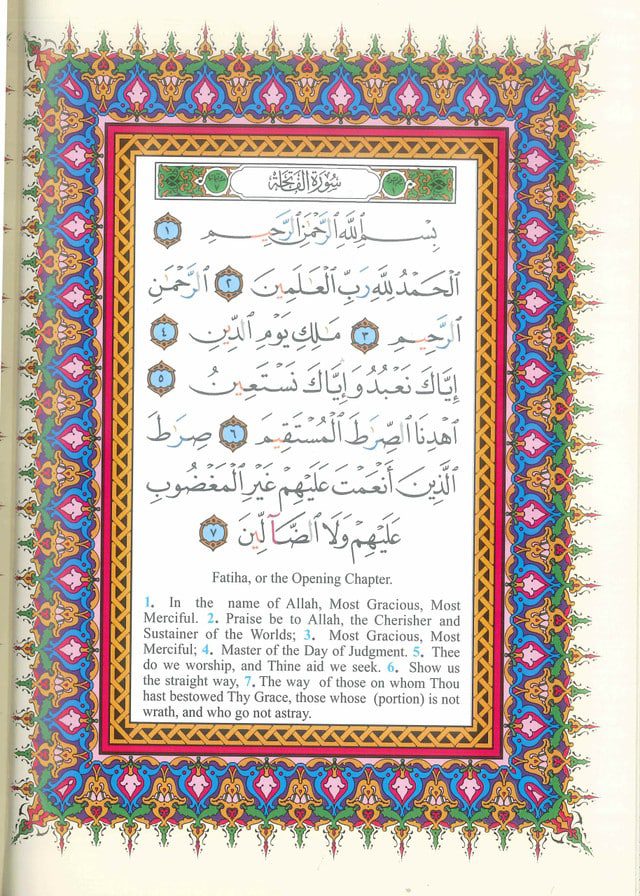 سُورَةُ الفَاتِحَةِ
بِسْمِ ٱللَّهِ ٱلرَّحْمَٰنِ ٱلرَّحِيمِ ١
ٱلْحَمْدُ لِلَّهِ رَبِّ ٱلْعَٰلَمِينَ ٢ ٱلرَّحْمَٰنِ
ٱلرَّحِيمِ ٣ مَٰلِكِ يَوْمِ ٱلدِّينِ ٤
إِيَّاكَ نَعْبُدُ وَإِيَّاكَ نَسْتَعِينُ ٥
ٱهْدِنَا ٱلصِّرَٰطَ ٱلْمُسْتَقِيمَ ٦ صِرَٰطَ
ٱلَّذِينَ أَنْعَمْتَ عَلَيْهِمْ غَيْرِ ٱلْمَغْضُوبِ
عَلَيْهِمْ وَلَا ٱلضَّآلِّينَ ٧
Fatiha, or the Opening Chapter.
1. In the name of Allah, Most Gracious, Most
Merciful. 2. Praise be to Allah, the Cherisher and
Sustainer of the Worlds; 3. Most Gracious, Most
Merciful; 4. Master of the Day of Judgment. 5. Thee
do we worship, and Thine aid we seek. 6. Show us
the straight way, 7. The way of those on whom Thou
hast bestowed Thy Grace, those whose (portion) is not
wrath, and who go not astray.